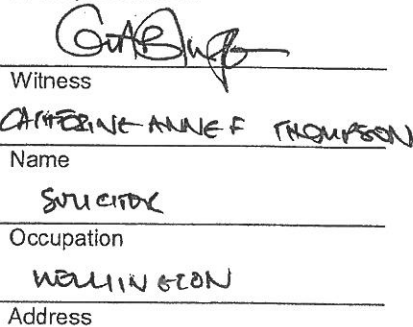 Witness
CATHERINE ANNE F THOMPSON
Name
SOLICITOR
Occupation
WELLINGTON
Address